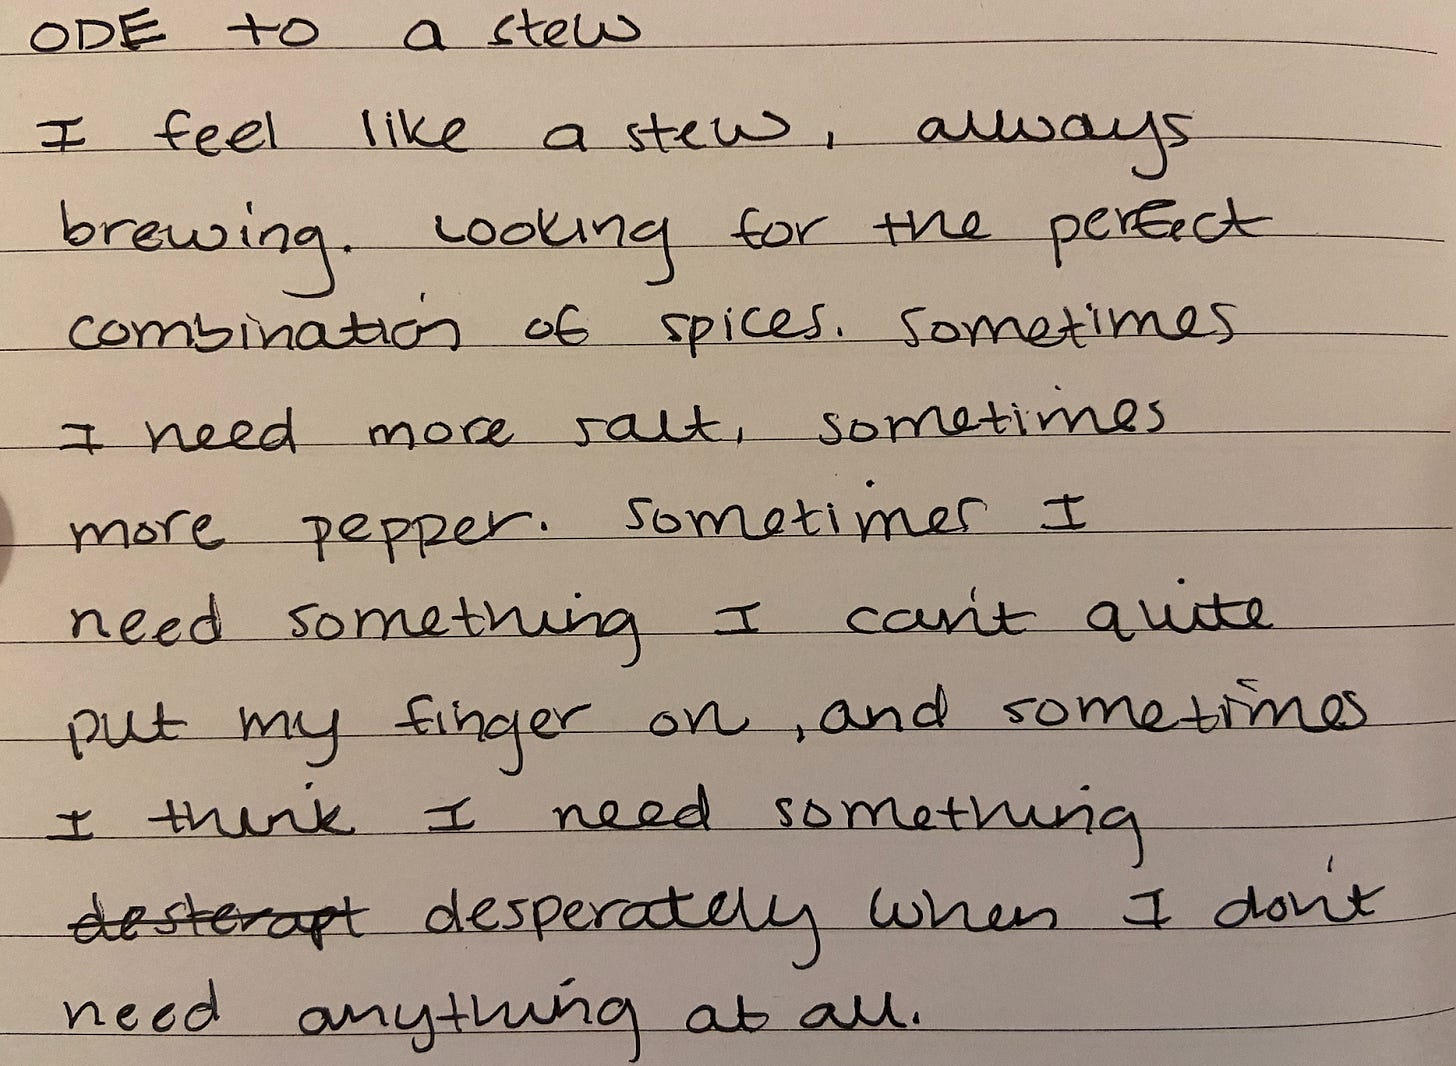 ODE to a stew
I feel like a stew, always
brewing. Looking for the perfect
combination of spices. Sometimes
I need more salt, sometimes
more pepper. Sometimes I
need something I can't quite
put my finger on, and sometimes
I think I need something
desterapt desperately when I don't
need anything at all.